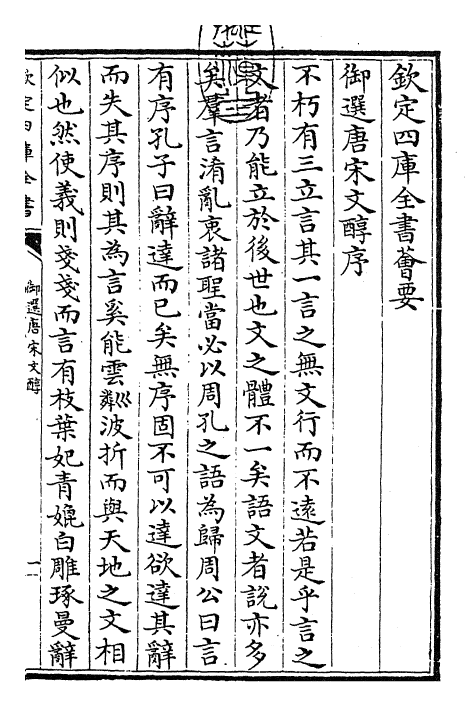 欽定四庫全書薈要
御選唐宋文醇序
不朽有三立言其一言之無文行而不遠若是乎言之
文者乃能立於後世也文之體不一矣語文者說亦多
矣羣言淆亂衷諸聖當必以周孔之語為歸周公曰言
有序孔子曰辭達而已矣無序固不可以達欲達其辭
而失其序則其為言奚能雲粼波折而與天地之文相
似也然使義則戔戔而言有枝葉妃青媲白雕琢曼辭
欽定四庫全書
御選唐宋文醇
一